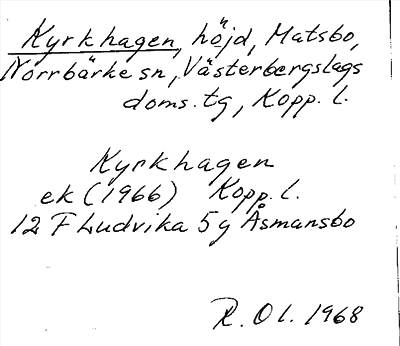 Kyrkhagen, höjd, Matsbo,
Norrbärke sn, Västerbergslags
doms. tg, Kopp. l.
Kyrkhagen
ek (1966) Kopp. l.
12 F Ludvika 5 g Åsmansbo
R. Ol. 1968